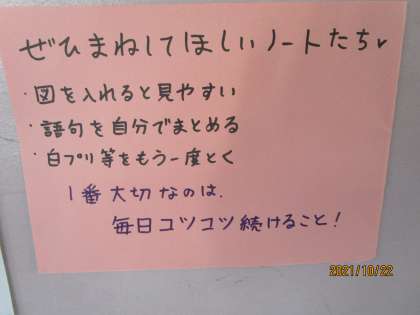 ぜひまねしてほしいノートたち♥
・図を入れると見やすい
・語句を自分でまとめる
・白プリ等をもう一度とく
1番大切なのは、
毎日コツコツ続けること!
2021/10/22